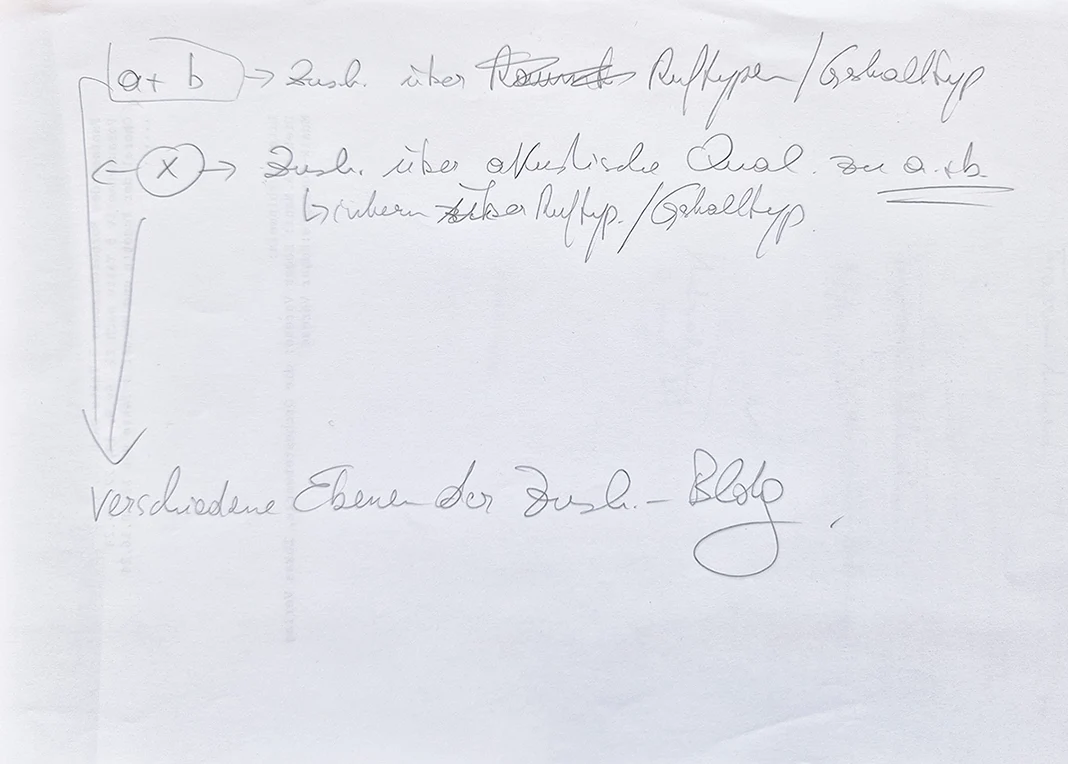 a + b → Zush. über Ruftypen/Gshalltyp
← X → Zush. über akustische Qual. zu a + b.
↳ intern über Ruftyp./Gshalltyp.
verschiedene Ebenen der Zush. - Bldg